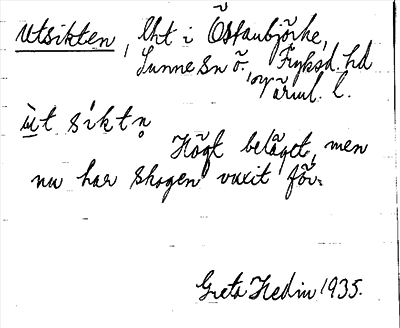 Utsikten, lht i Östanbjörke,
Sunne sn ö., Fryksd. hd
Värml. l.
ùt síktn̥
Högt beläget, men
nu har skogen vuxit för.
Greta Hedin 1935.